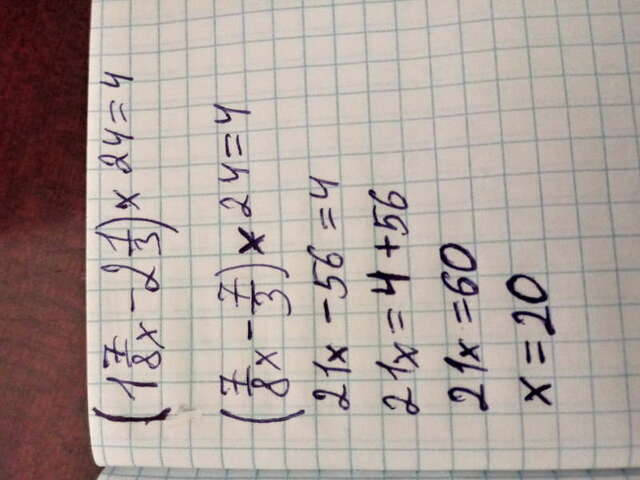 (1 7/8 x - 2 1/3) × 24 = 4
(7/8 x - 7/3) × 24 = 4
21x - 56 = 4
21x = 4 + 56
21x = 60
x = 20